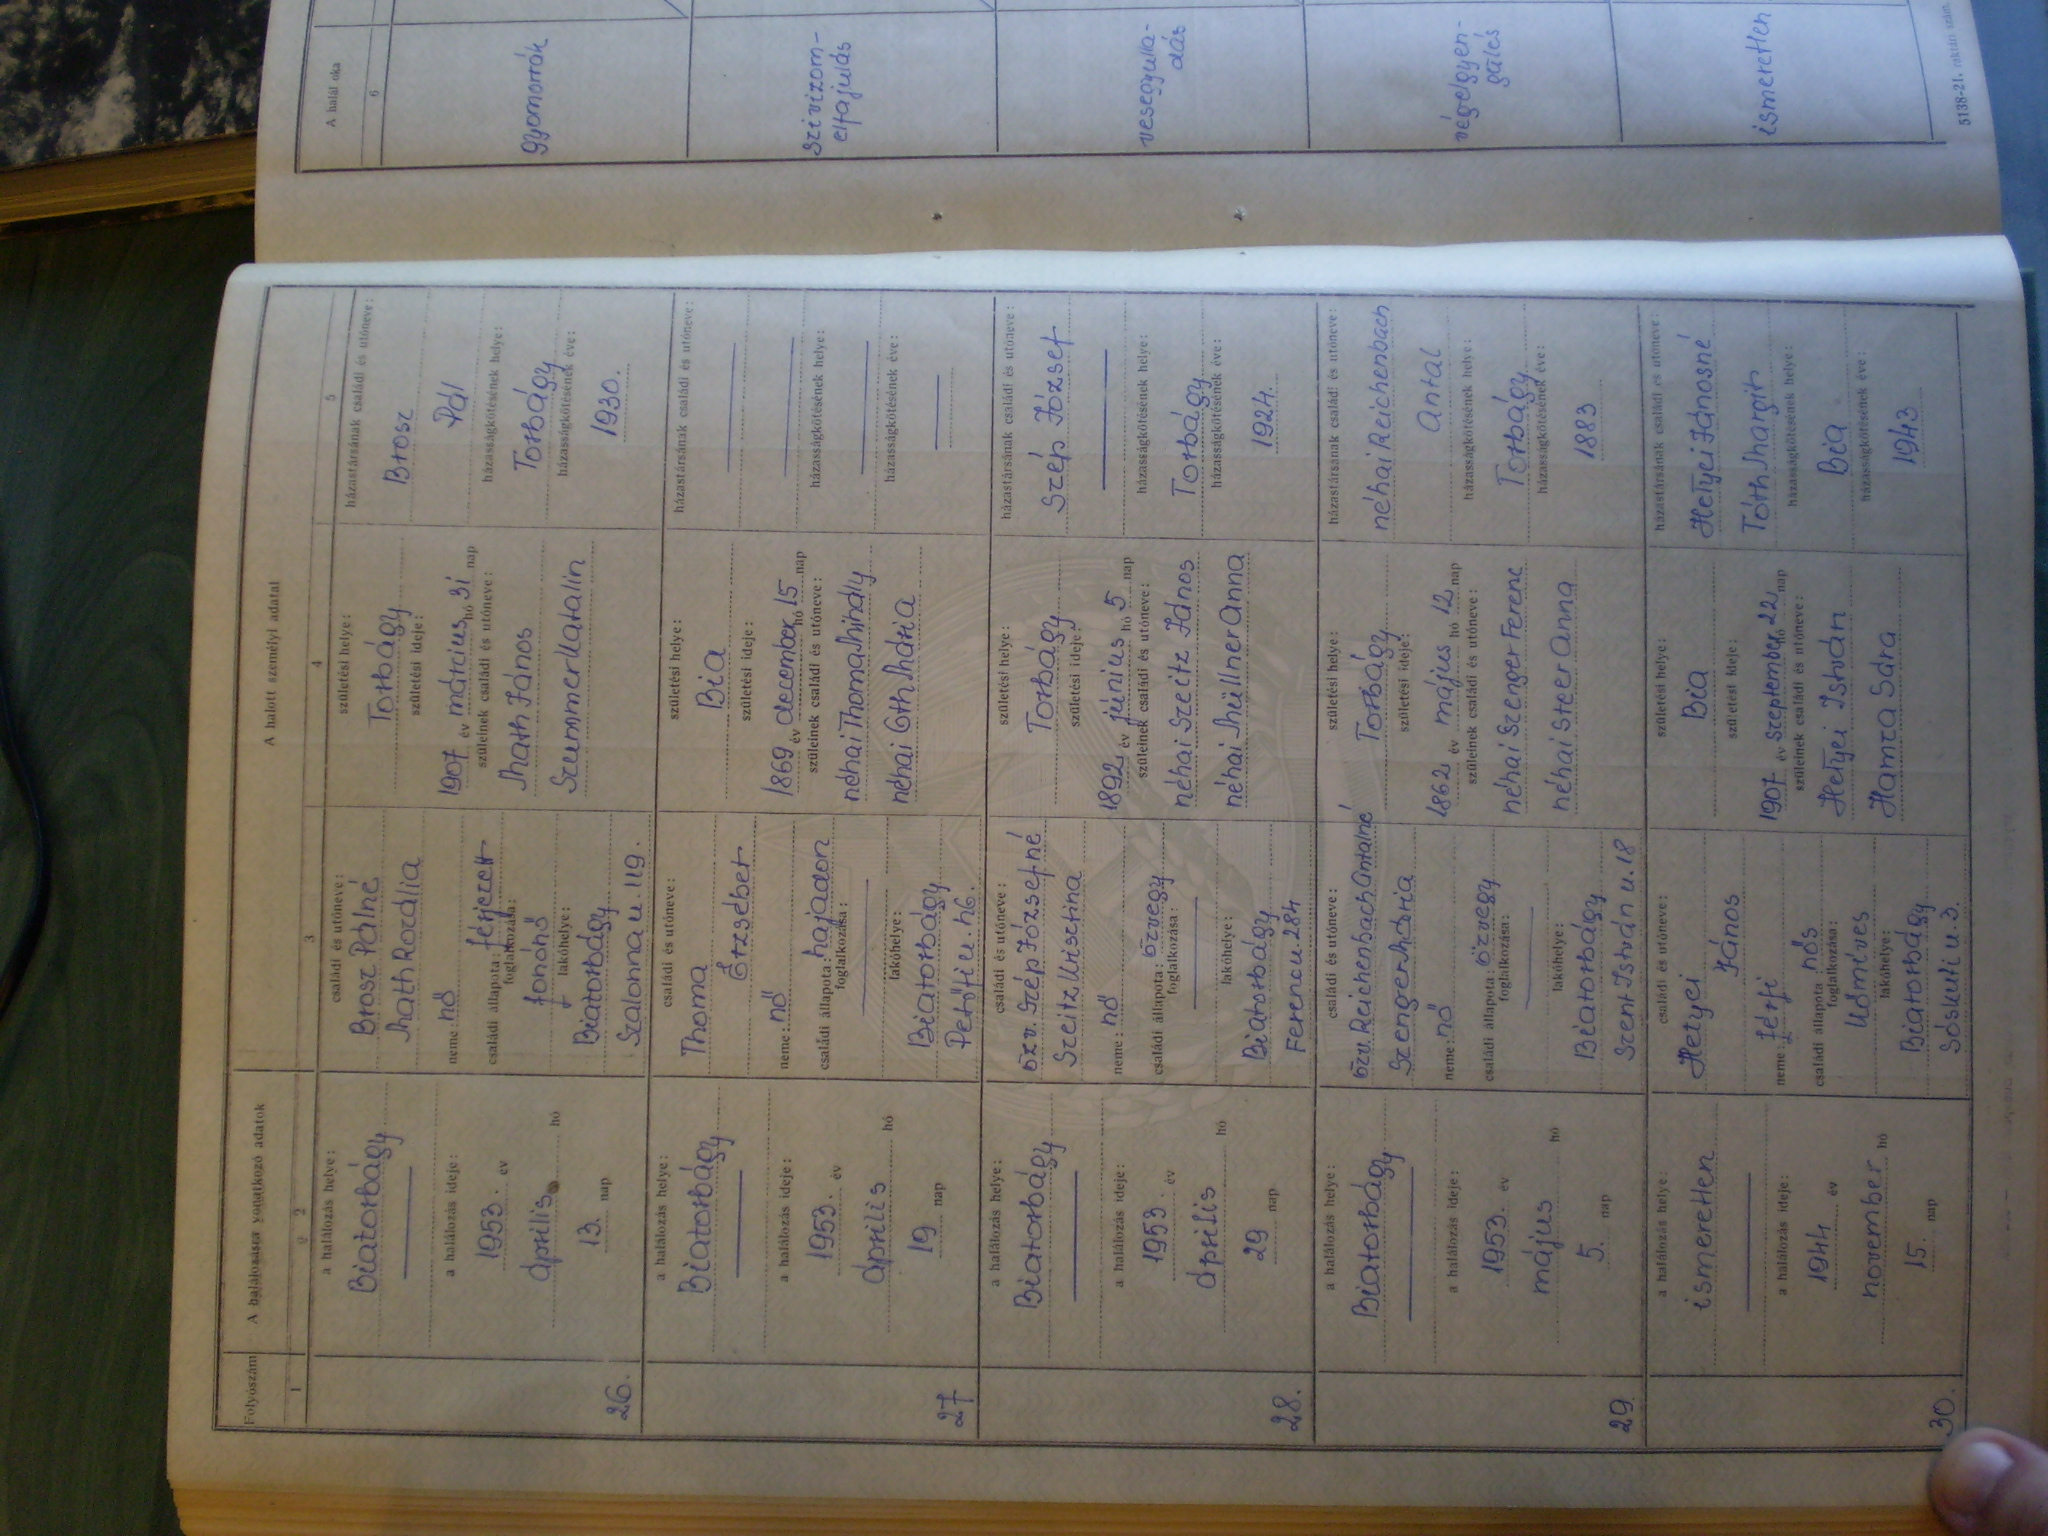 Folyószám
A halálozásra vonatkozó adatok
A halott személyi adatai
A halál oka
1
2
3
4
5
6
26.
a halálozás helye:
Biatorbágy
a halálozás ideje:
1953. év
április hó
13. nap
családi és utóneve:
Brosz Pálné
Math Rozália
neme: nő
családi állapota: férjezett
foglalkozása:
fonónő
lakóhelye:
Biatorbágy
Szalonna u. 119.
születési helye:
Torbágy
születési ideje:
1907 év március hó 31 nap
szüleinek családi és utóneve:
Math János
Szummer Katalin
házastársának családi és utóneve:
Brosz
Pál
házasságkötésének helye:
Torbágy
házasságkötésének éve:
1930.
gyomorrák
27
a halálozás helye:
Biatorbágy
a halálozás ideje:
1953. év
április hó
19 nap
családi és utóneve:
Thoma
Erzsébet
neme: nő
családi állapota: hajadon
foglalkozása:
lakóhelye:
Biatorbágy
Petőfi u.
születési helye:
Bia
születési ideje:
1869 év december hó 15 nap
szüleinek családi és utóneve:
néhai Thoma Mihály
néhai Óth Mária
házastársának családi és utóneve:
házasságkötésének helye:
házasságkötésének éve:
szivizom-
elfajulás
28.
a halálozás helye:
Biatorbágy
a halálozás ideje:
1953. év
április hó
29 nap
családi és utóneve:
özv. Szép Józsefné
Szeitz Krisztina
neme: nő
családi állapota: özvegy
foglalkozása:
lakóhelye:
Biatorbágy
Ferenc u. 284
születési helye:
Torbágy
születési ideje:
1892 év június hó 5 nap
szüleinek családi és utóneve:
néhai Szeitz János
néhai Müllner Anna
házastársának családi és utóneve:
Szép József
házasságkötésének helye:
Torbágy
házasságkötésének éve:
1924.
vesegyulla-
dás
29.
a halálozás helye:
Biatorbágy
a halálozás ideje:
1953. év
május hó
5. nap
családi és utóneve:
özv. Reichenbach Antalné
Szenger Mária
neme: nő
családi állapota: özvegy
foglalkozása:
lakóhelye:
Biatorbágy
Szent István u. 18
születési helye:
Torbágy
születési ideje:
1862 év május hó 12 nap
szüleinek családi és utóneve:
néhai Szenger Ferenc
néhai Steer Anna
házastársának családi és utóneve:
néhai Reichenbach
Antal
házasságkötésének helye:
Torbágy
házasságkötésének éve:
1883
végelgyen-
gülés
30.
a halálozás helye:
ismeretlen
a halálozás ideje:
1944 év
november hó
15. nap
családi és utóneve:
Helyei
János
neme: férfi
családi állapota nős
foglalkozása:
kőmíves
lakóhelye:
Biatorbágy
Sóskuti u. 3.
születési helye:
Bia
születési ideje:
1907 év szeptember hó 22 nap
szüleinek családi és utóneve:
Helyei István
Hamza Sára
házastársának családi és utóneve:
Helyei Jánosné
Tóth Margit
házasságkötésének helye:
Bia
házasságkötésének éve:
1943
ismeretlen
5138-21. raktári szám.